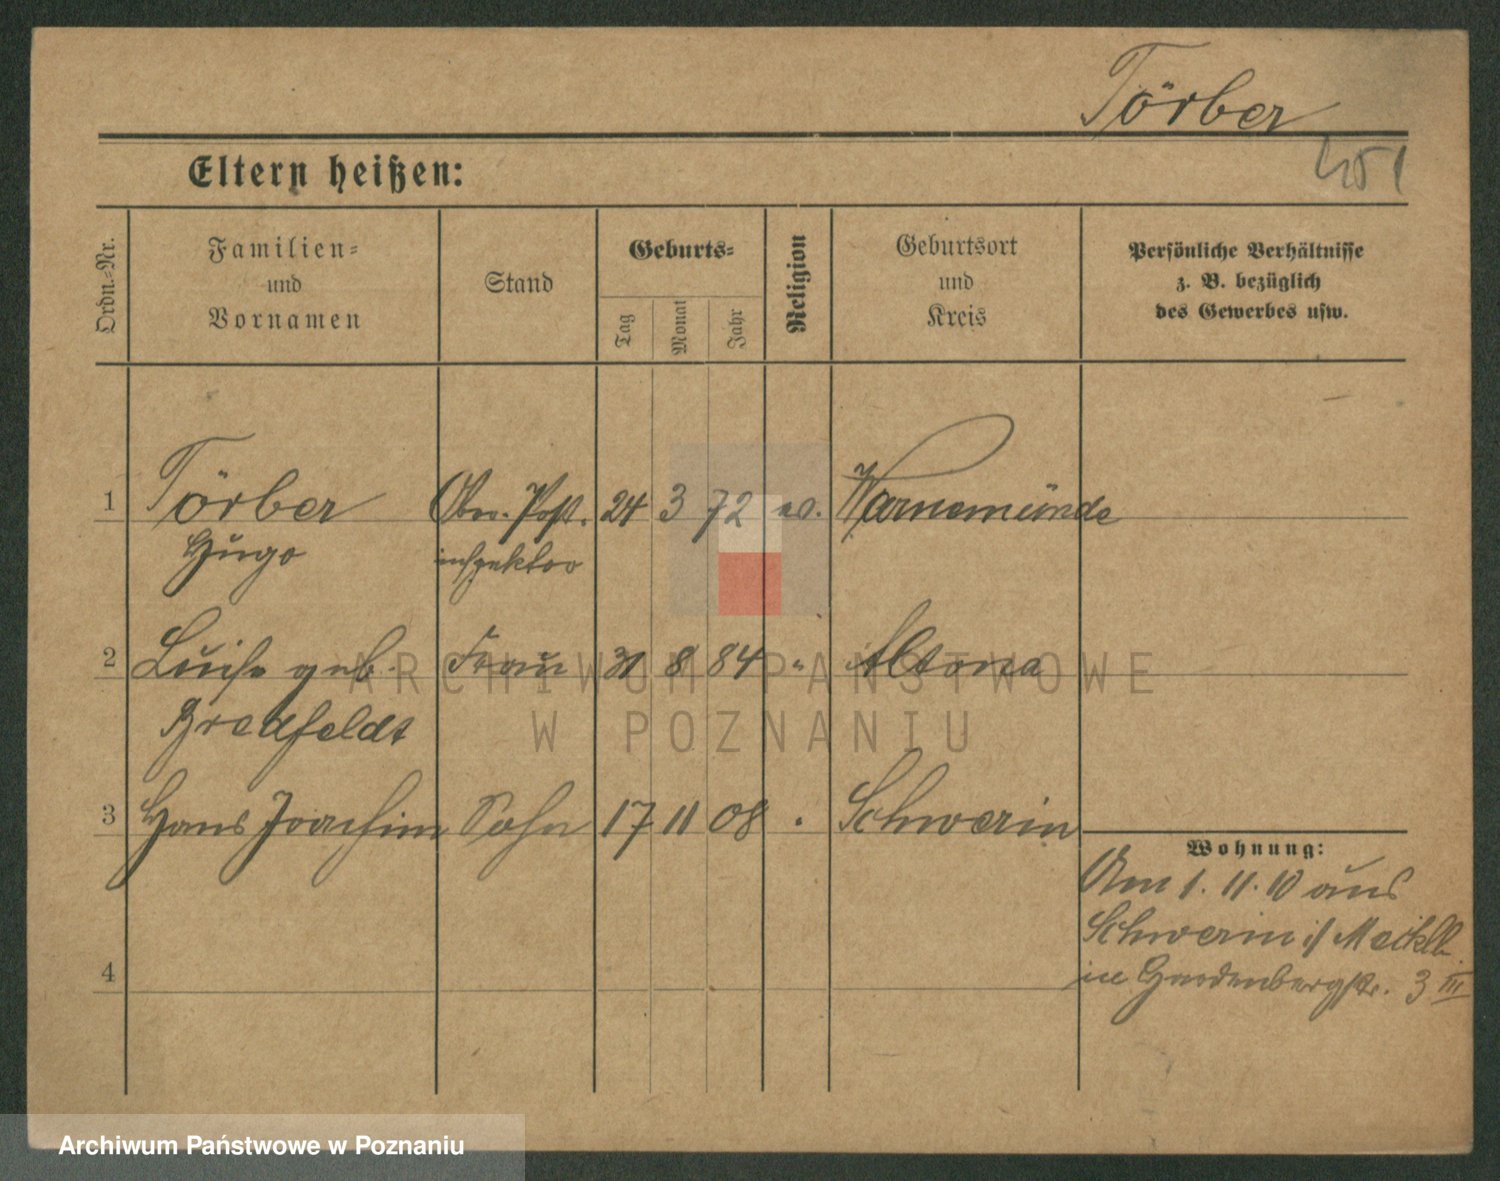 Törber
451
Eltern heißen:
Ordn.-Nr.
Familien-
und
Vornamen
Stand
Geburts-
Tag
Monat
Jahr
Religion
Geburtsort
und
Kreis
Persönliche Verhältnisse
z. B. bezüglich
des Gewerbes usw.
1 Törber Ober-Post. 24 3 72 ev. Warnemünde
Hugo inspektor
2 Luise geb. Frau 31 8 84 " Altona
Bredfeldt
3 Hans Joachim Sohn 17 11 08 . Schwerin
Wohnung:
Am 1. 11. 10 aus
Schwerin i/ Mecklb.
in Hardenbergstr. 3 III
4
ARCHIWUM PAŃSTWOWE
W POZNANIU
Archiwum Państwowe w Poznaniu